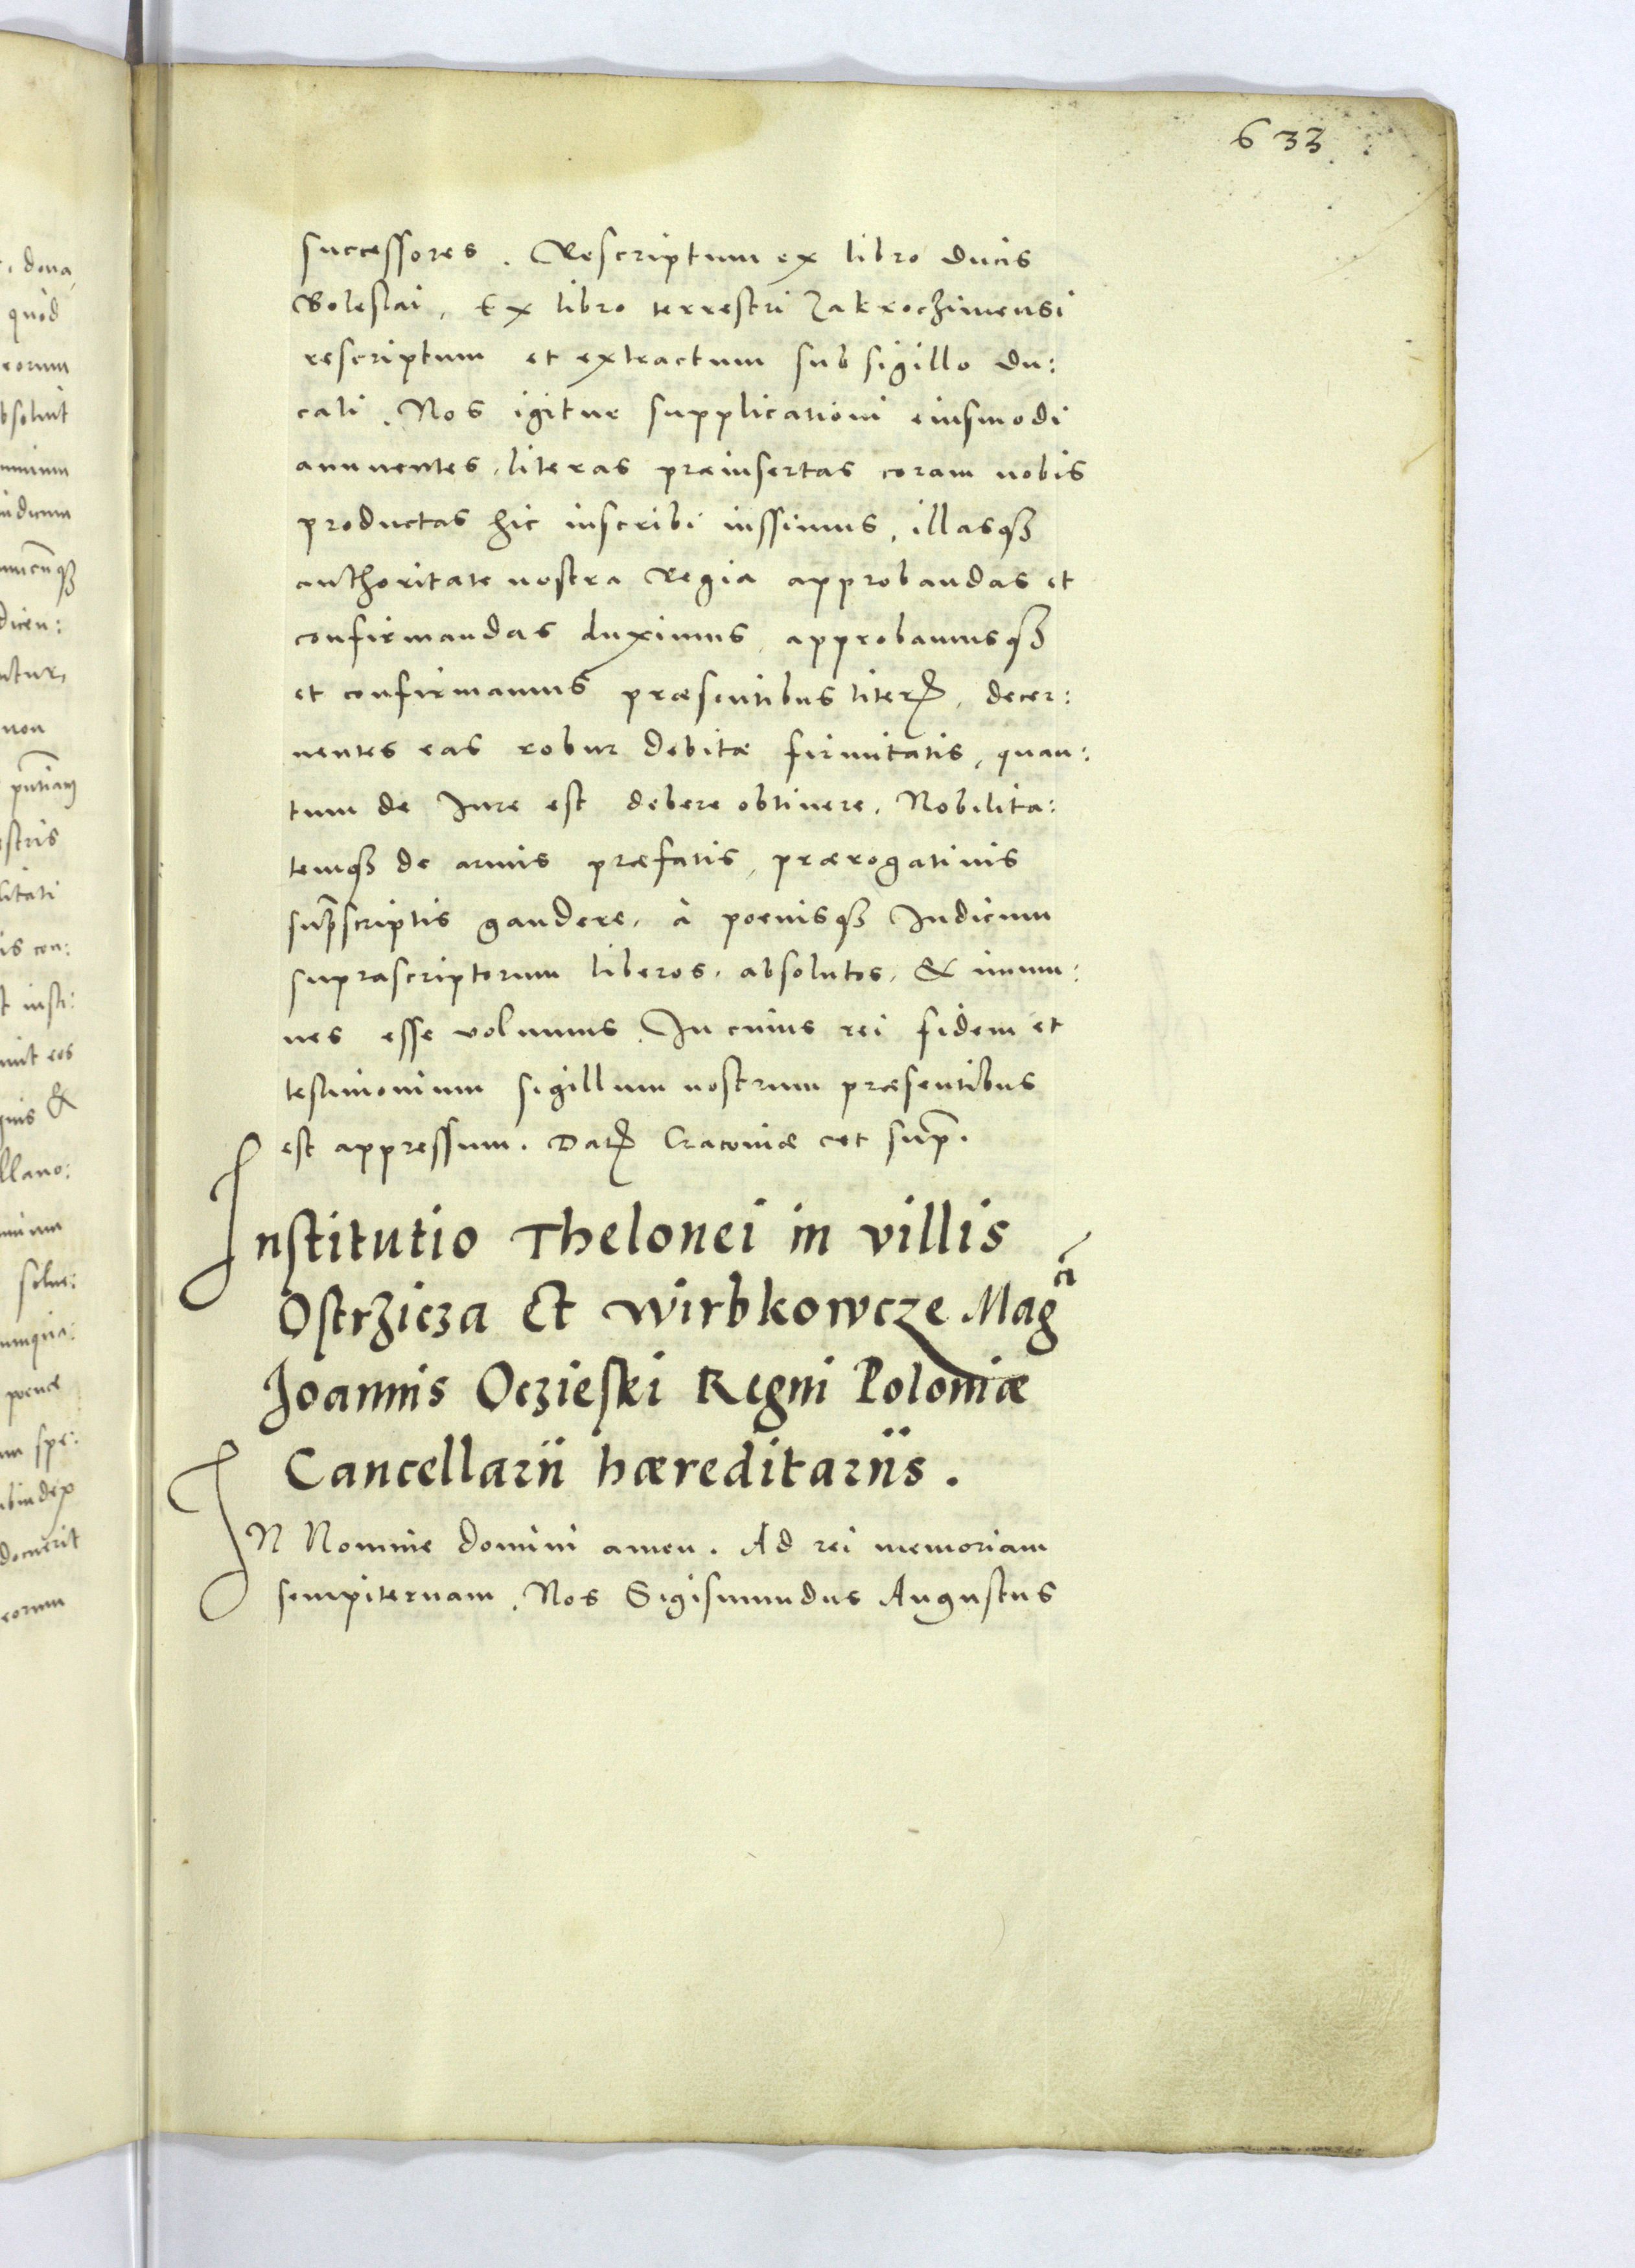 633
successores. Rescriptum ex libro Ducis
Boleslai, Ex libro terrestri Zakroczimensi
rescriptum et extractum sub sigillo du:
cali. Nos igitur supplicationi eiusmodi
annuentes, literas præinsertas coram nobis
productas hic inscribi iussimus, illasqꝫ
authoritate nostra Regia approbandas et
confirmandas duximus, approbamusqꝫ
et confirmamus præsentibus literꝭ, decer:
nentes eas robur debitæ firmitatis, quan:
tum de Iure est debere obtinere, Nobilita:
temqꝫ de armis præfatis, prærogatiuis
supᷓscriptis gaudere, à poenisqꝫ Iudicum
suprascriptorum liberos, absolutos, & immu:
nes esse volumus. In cuius rei fidem et
testimonium sigillum nostrum præsentibus
est appressum. Datꝭ Cracouiæ cet sup̄.
Institutio Thelonei in villis
Ostrzicza Et Wirbkowcze Magci
Joannis Oczieski Regni Poloniæ
Cancellarii hæreditariis.
IN Nomine domini amen. Ad rei memoriam
sempiternam. Nos Sigismundus Augustus
dona
quòd
eorum
non
pœnæ
docuerit
eorum